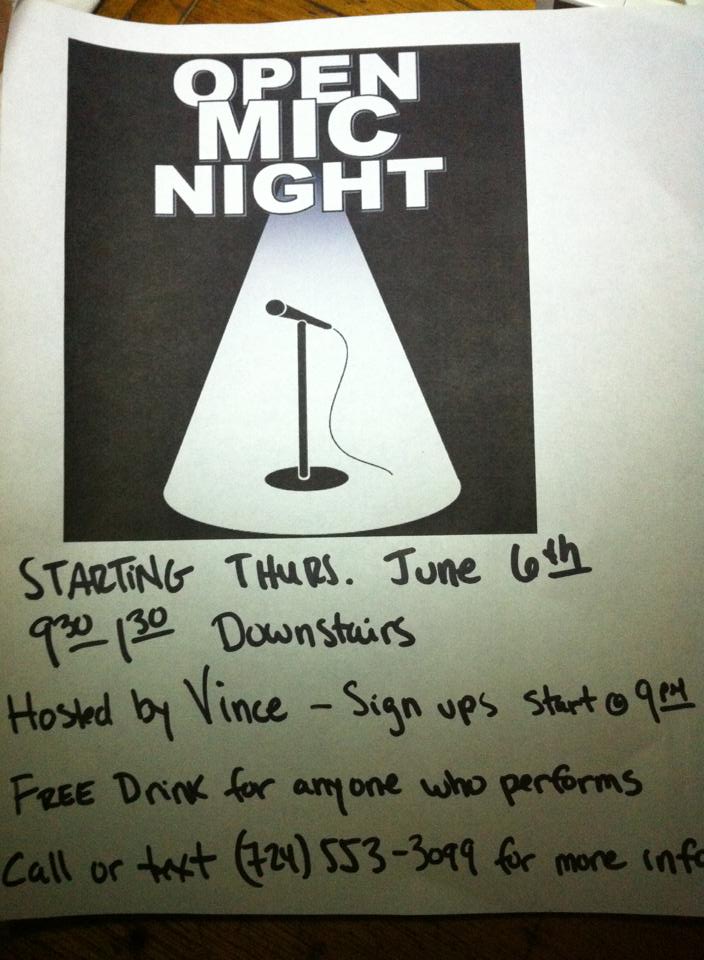 OPEN
MIC
NIGHT
STARTING THURS. June 6th
930-130 Downstairs
Hosted by Vince - Sign ups start @ 9PM
FREE Drink for anyone who performs
Call or text (724) 553-3099 for more info